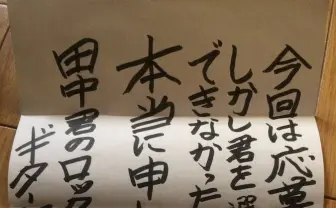 今回は応募
しかし君を選
できなかった
本当に申し
田中君のロック
ギター